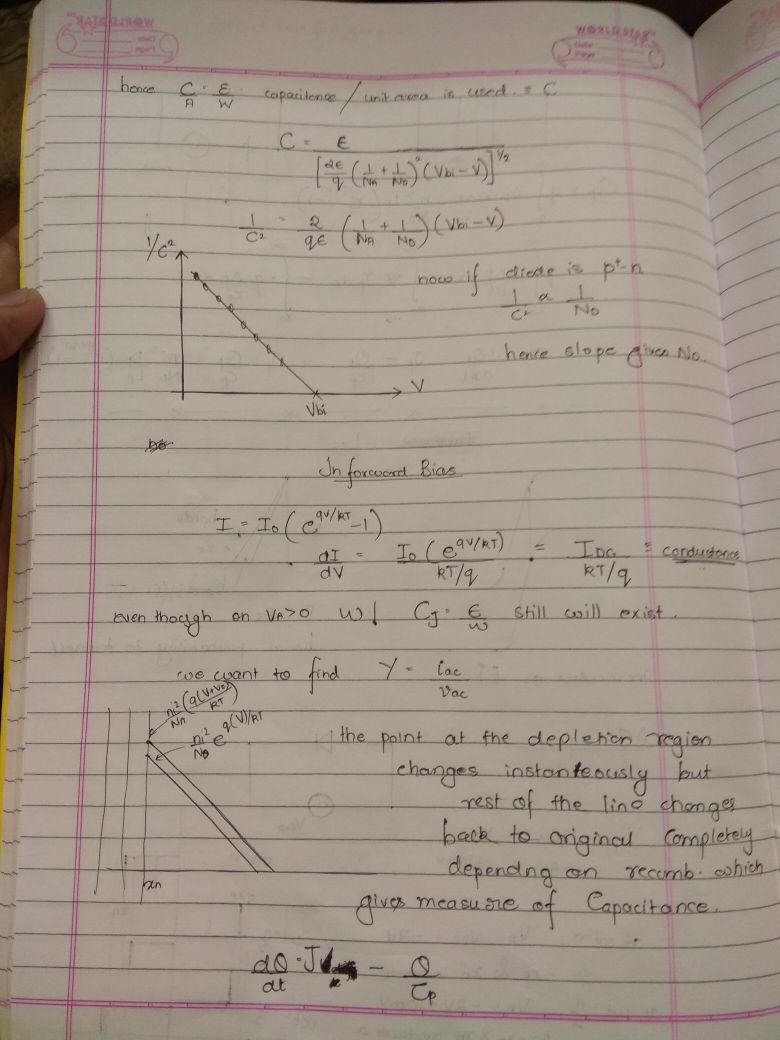 WORLD STAR
WORLD STAR
Date
Page
hence C/A = ε/W capacitence / unit area is used. = C
C = ε / [2ε/q (1/NA + 1/ND)² (Vbi - V)]^1/2
1/C² = 2/qε (1/NA + 1/ND) (Vbi - V)
1/C²
now if diode is p+-n
1/C² α 1/ND
hence slope gives ND.
V
Vbi
In forward Bias
I = I0 (e^qV/kT - 1)
dI/dV = I0 (e^qV/kT) / kT/q = IDC / kT/q = conductance
even though on VA>0 W↓ CJ = ε/W still will exist.
we want to find Y = iac/vac
ni²/NA (q(V+V0)/kT)
ni²/ND e^q(V)/kT
the point at the depletion region
changes instanteously but
rest of the line changes
back to original completely
dependng on recomb. which
gives measure of Capacitance.
xn
dQ/dt = J - Q/τp